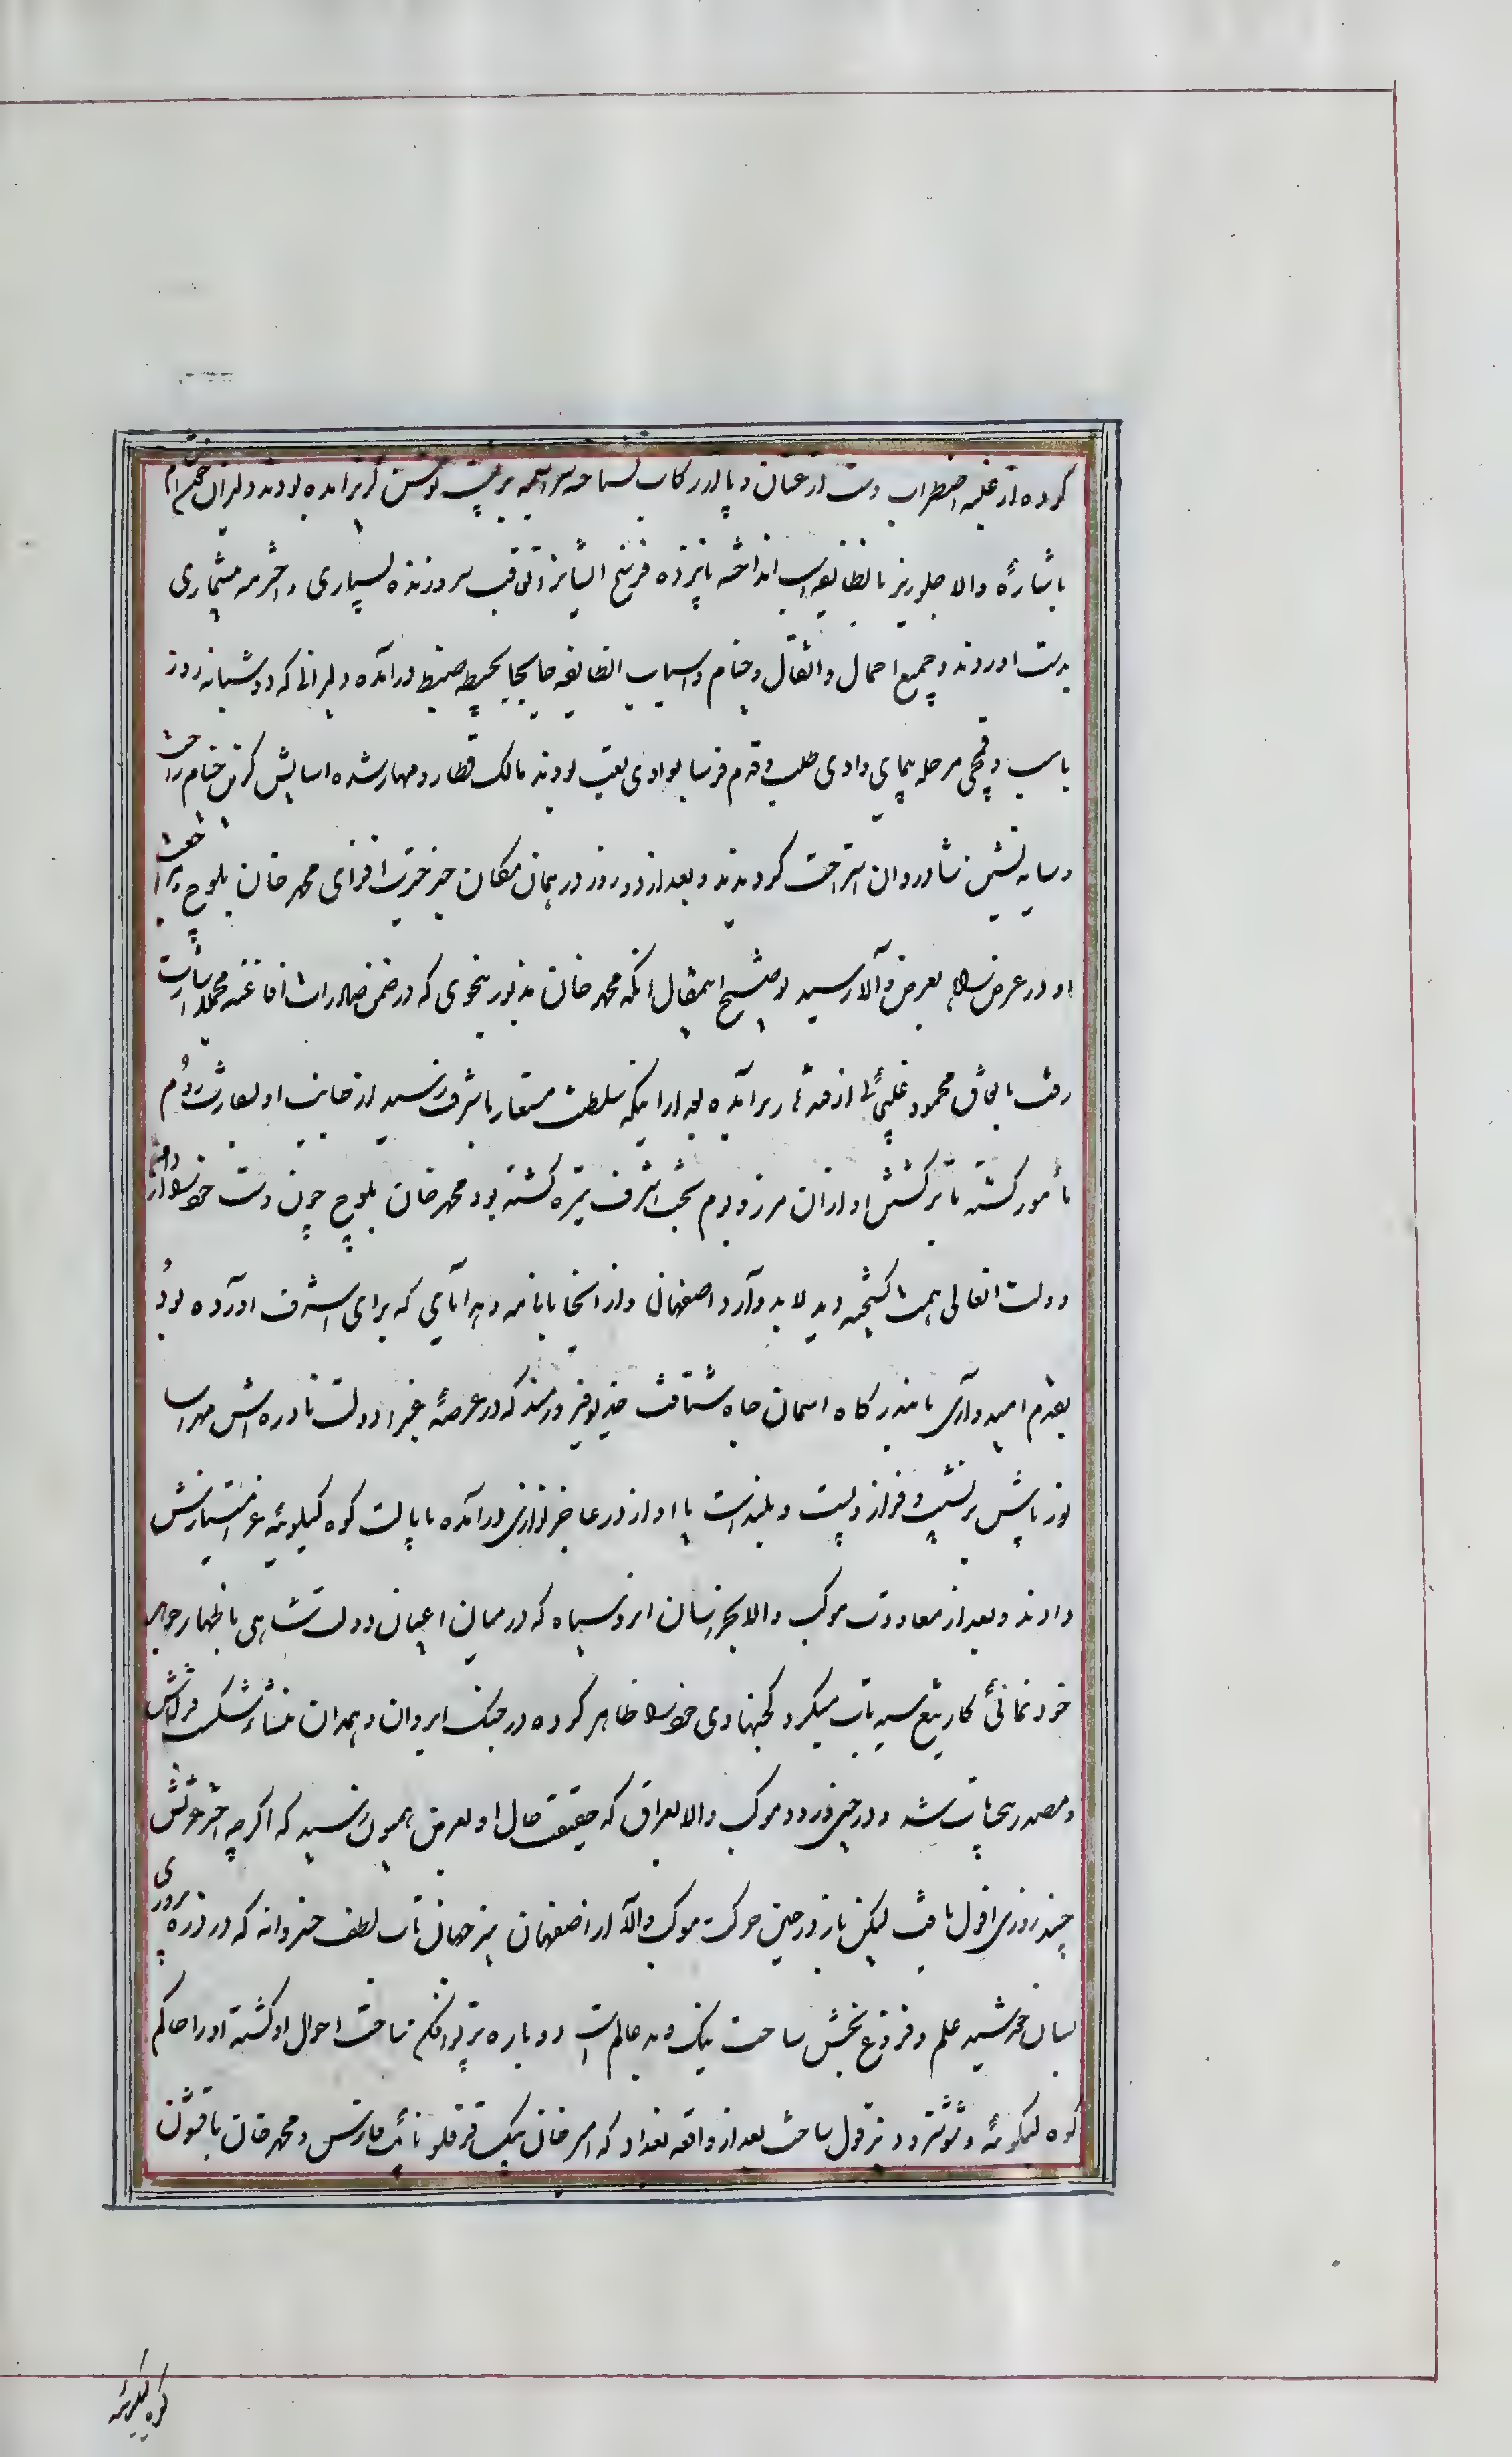 کرده از غلبه اضطراب دست از عنان و پا از رکاب نشناخته سراسیمه بر پشت توسن گریز برآمده بودند دلیران خصم
باشارهٔ والا جلوریز بانطایفه اسب انداخته پانزده فرسخ ایشانرا تعاقب سر و زنده بسیاری و اختر مه بیشماری
بدست اوردند و جمیع احمال و اثقال و خیام و اسباب انطایفه جابجا بحیطه ضبط درآمده دلیرانی که دو شبانه روز
با اسب و قمچی مرحله پیمای وادی طلب و قدم فرسا بوادی تعب بودند مالک قطار و مهار شده اسایش گزین خیام راحت
و سایه نشین شادروان استراحت گردیدند و بعد از دو روز در همان مکان خبر حیرت افزای محمد خان بلوچ
او در عرض راه بعرض والا رسید توضیح اینمقال انکه محمد خان مذبور بنحوی که در ضمن صادرات افاغنه مجملا اشارت
رفت باتفاق محمود غلیجائی از قندهار برآمده بعد از اینکه سلطنت مستعار باشرف رسید از جانب او بسفارت روم
مأمور گشته تا برگشتن او ازان مرز و بوم بخت اشرف تیره گشته بود محمد خان بلوچ چون دست خود را از دامن
دولت افغانی گسیخته دید لابد وارد اصفهان و از انجا بانامه و هدایائی که برای اشرف اورده بود
بقدم امیدواری باندرگاه اسمان جاه شتافت خدیو فیروزمند که در عرصهٔ غبرا دولت نادره اش مهر اسا
نور پاش بر نشیب و فراز و پست و بلند است با او از در عاجز نوازی درآمده بایالت کوه کیلویه عز امتیازش
دادند و بعد از معاودت موکب والا بخراسان انروسیاه که در میان اعیان دولت شاهی باظهار جواهر
خودنمائی کار تیغ سیه تاب میکرد کجنهادی خود را ظاهر کرده در جنگ ایروان و همدان منشاء شکست قزلباش
و مصدر سخنان شد و در حین ورود موکب والا بعراق که حقیقت حال او بعرض همیون رسید که اگرچه اختر عزتش
چند روزی افول یافت لیکن باز در حین حرکت موکب والا از اصفهان نیر جهان تاب لطف خسروانه که در ذره پروری
بسان خورشید علم و فروغ بخش ساحت نیک و بد عالم است دوباره پرتو افکن ساحت احوال او گشته او را حاکم
کوه کیلویه و شوشتر و دزفول ساخت بعد از واقعه بغداد که امیر خان بیک قرقلو نائب فارس و محمد خان با قشون
کوه کیلویه